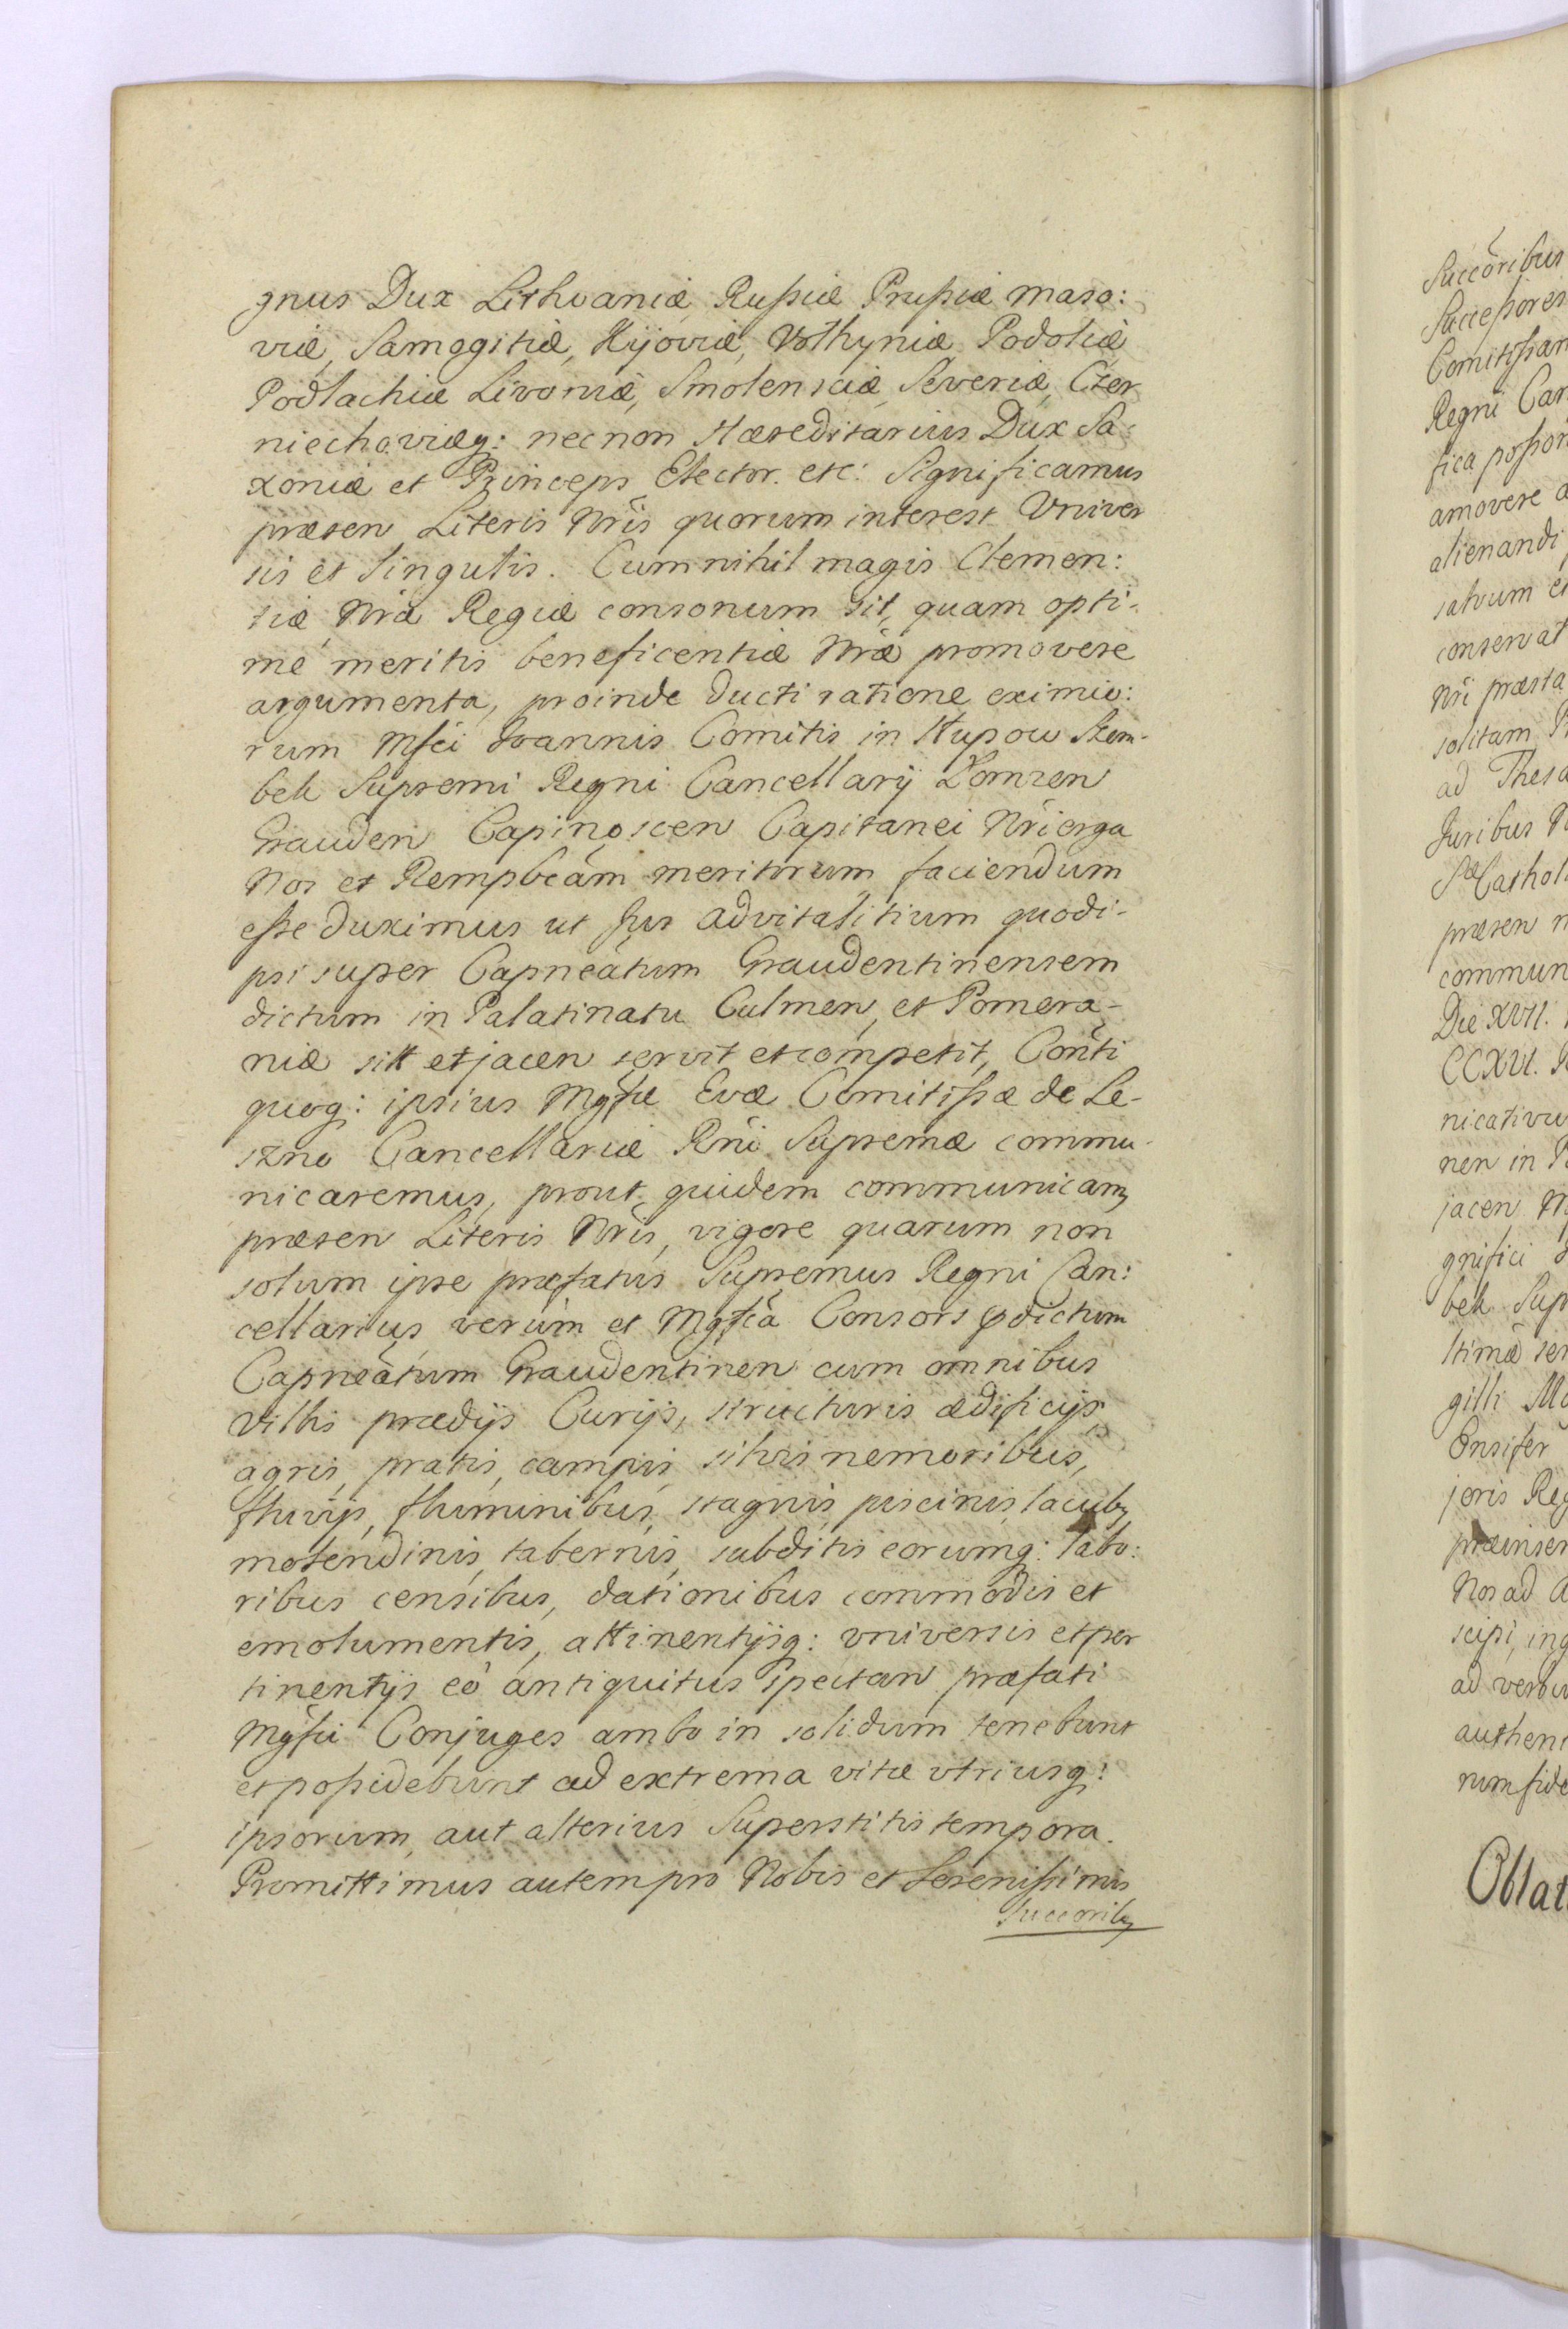 gnus Dux Lithvaniæ, Rußiæ Prußiæ maso:
viæ, Samogitiæ, Kijoviæ, Volhyniæ Podoliæ
Podlachiæ Livoniæ, Smolensciæ Severiæ, Czer
niechoviæq: necnon Hæreditarius Dux Sa:
xoniæ et Princeps Elector. etc: Significamus
præsen Literis Nris quorum interest Vniver
sis et singulis. Cum nihil magis Clemen:
tiæ Nræ Regiæ consonum sit, quam opti-
me meritis beneficentiæ Nræ promovere
argumenta, proinde ducti ratione eximio:
rum Mfci Joannis Comitis in Słupow Szem-
bek Supremi Regni Cancellarij Łomzen
Grauden Capinoscen Capitanei Nri erga
Nos et Rempbcam meritorum faciendum
eße duximus ut Jus advitalitium quod i-
psi super Capneatum Graudentinensem
dictum in Palatinatu Culmen, et Pomera-
niæ sitt et jacen servit et competit, Conti
quoq: ipsius Mgfæ Evæ Comitißæ de Le-
szno Cancellariæ Rni Supremæ commu-
nicaremus, prout quidem communicamq
præsen Literis Nris, vigore quarum non
solum ipse præfatus Supremus Regni Can:
cellarius verum et Mgfca Consors pdictum
Capneatum Graudentinen cum omnibus
villis prædijs Curijs, structuris ædificijs
agris, pratis, campis silvis nemoribus,
fluvijs, fluminibus, stagnis, piscinis, lacubq
molendinis, tabernis, subditis eorumq: labo:
ribus censibus, dationibus commodis et
emolumentis, attinentijsq: vniversis et per
tinentijs eo antiquitus spectan præfati
Mgfci Conjuges ambo in solidum tenebunt
et poßidebunt ad extrema vitæ vtriusq:
ipsorum, aut alterius Superstitis tempora.
Promittimus autem pro Nobis et Serenißimis
Succoribq
Succoribus
Succeßores
Comitißam
Regni Can
fica poßor
amovere a
alienandi
salvum et
conservat
Nri præsta
solitam
ad Thesa
Juribus
Catholi
præsen n
commun
Die XVII.
CCXVI.
nicativu
nen in
jacen
gnifici
bek Sup
stimæ ser
gilli
Ensifer
joris Reg
præinser
Nos ad a
scipi, ing
ad verbu
authen
rum fide
Oblat